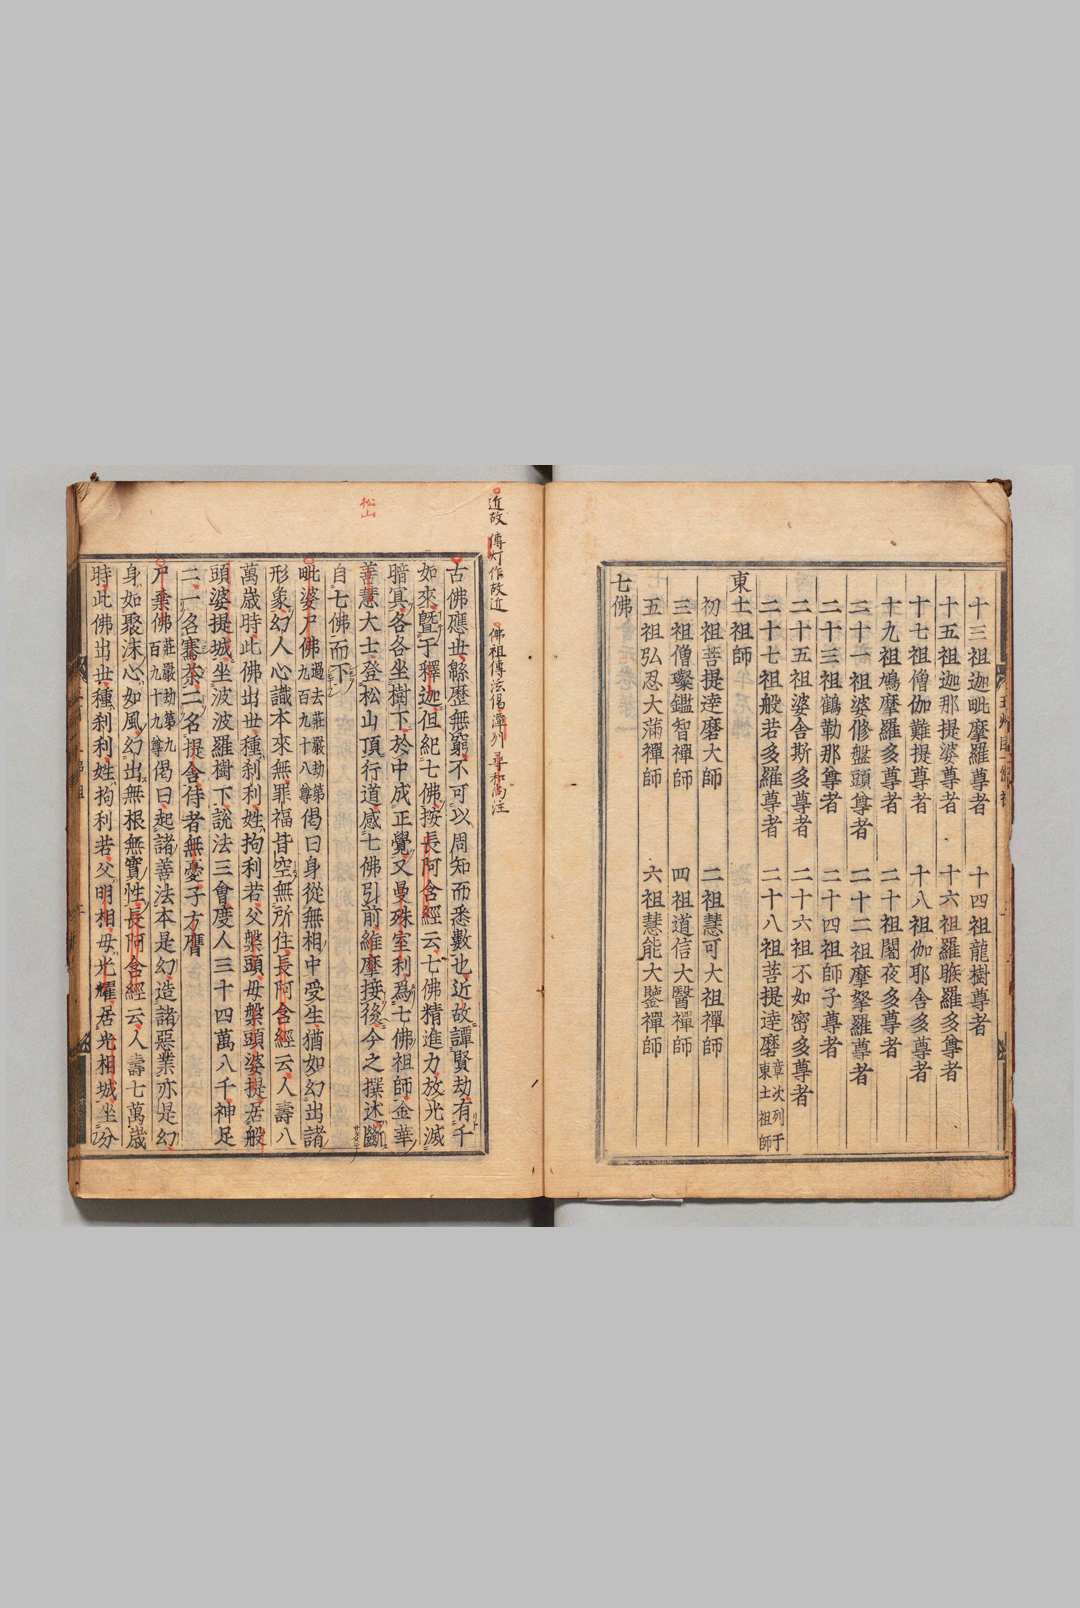 十三祖迦毗摩羅尊者 十四祖龍樹尊者
十五祖迦那提婆尊者 十六祖羅睺羅多尊者
十七祖僧伽難提尊者 十八祖伽耶舍多尊者
十九祖鳩摩羅多尊者 二十祖闍夜多尊者
二十一祖婆修盤頭尊者 二十二祖摩拏羅尊者
二十三祖鶴勒那尊者 二十四祖師子尊者
二十五祖婆舍斯多尊者 二十六祖不如密多尊者
二十七祖般若多羅尊者 二十八祖菩提達磨章次列于東土祖師
東土祖師
初祖菩提達磨大師 二祖慧可大祖禪師
三祖僧璨鑑智禪師 四祖道信大醫禪師
五祖弘忍大滿禪師 六祖慧能大鑒禪師
七佛
近故 傳灯作故近 佛祖傳法偈
松山
古佛應世緜歷無窮不可以周知而悉數也近故譚賢劫有千
如來暨于釋迦但紀七佛按長阿含經云七佛精進力放光滅
暗冥各各坐樹下於中成正覺又曼殊室利為七佛祖師金華
善慧大士登松山頂行道感七佛引前維摩接後今之撰述斷
自七佛而下
毗婆尸佛過去莊嚴劫第九百九十八尊偈曰身從無相中受生猶如幻出諸
形象幻人心識本來無罪福皆空無所住長阿含經云人壽八
萬歲時此佛出世種剎利姓拘利若父槃頭母槃頭婆提居般
頭婆提城坐波波羅樹下說法三會度人三十四萬八千神足
二一名騫茶二名提舍侍者無憂子方膺
尸棄佛莊嚴劫第九百九十九尊偈曰起諸善法本是幻造諸惡業亦是幻
身如聚沫心如風幻出無根無實性長阿含經云人壽七萬歲
時此佛出世種剎利姓拘利若父明相母光耀居光相城坐分